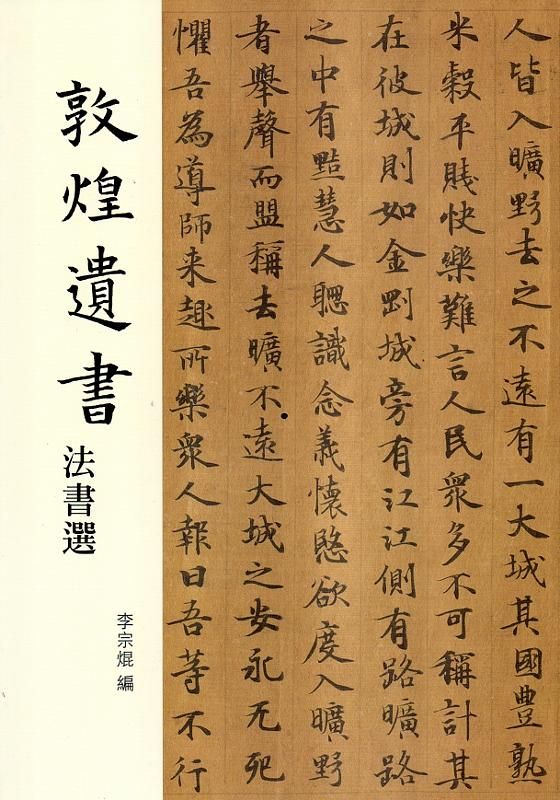 人皆入曠野去之不遠有一大城其國豊熟
米穀平賤快樂難言人民衆多不可稱計其
在彼城則如金剛城旁有江江側有路曠路
之中有黠慧人聰識念義懷愍欲度入曠野
者舉聲而盟稱去曠不遠大城之安永无死
懼吾為導師来趣所樂衆人報曰吾等不行
敦煌遺書
法書選
李宗焜 編